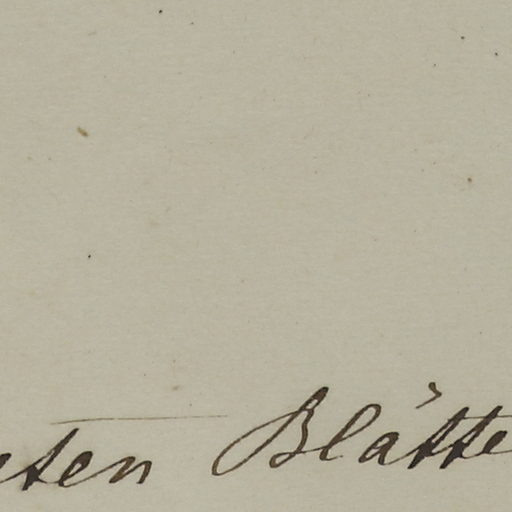 eten Blätte